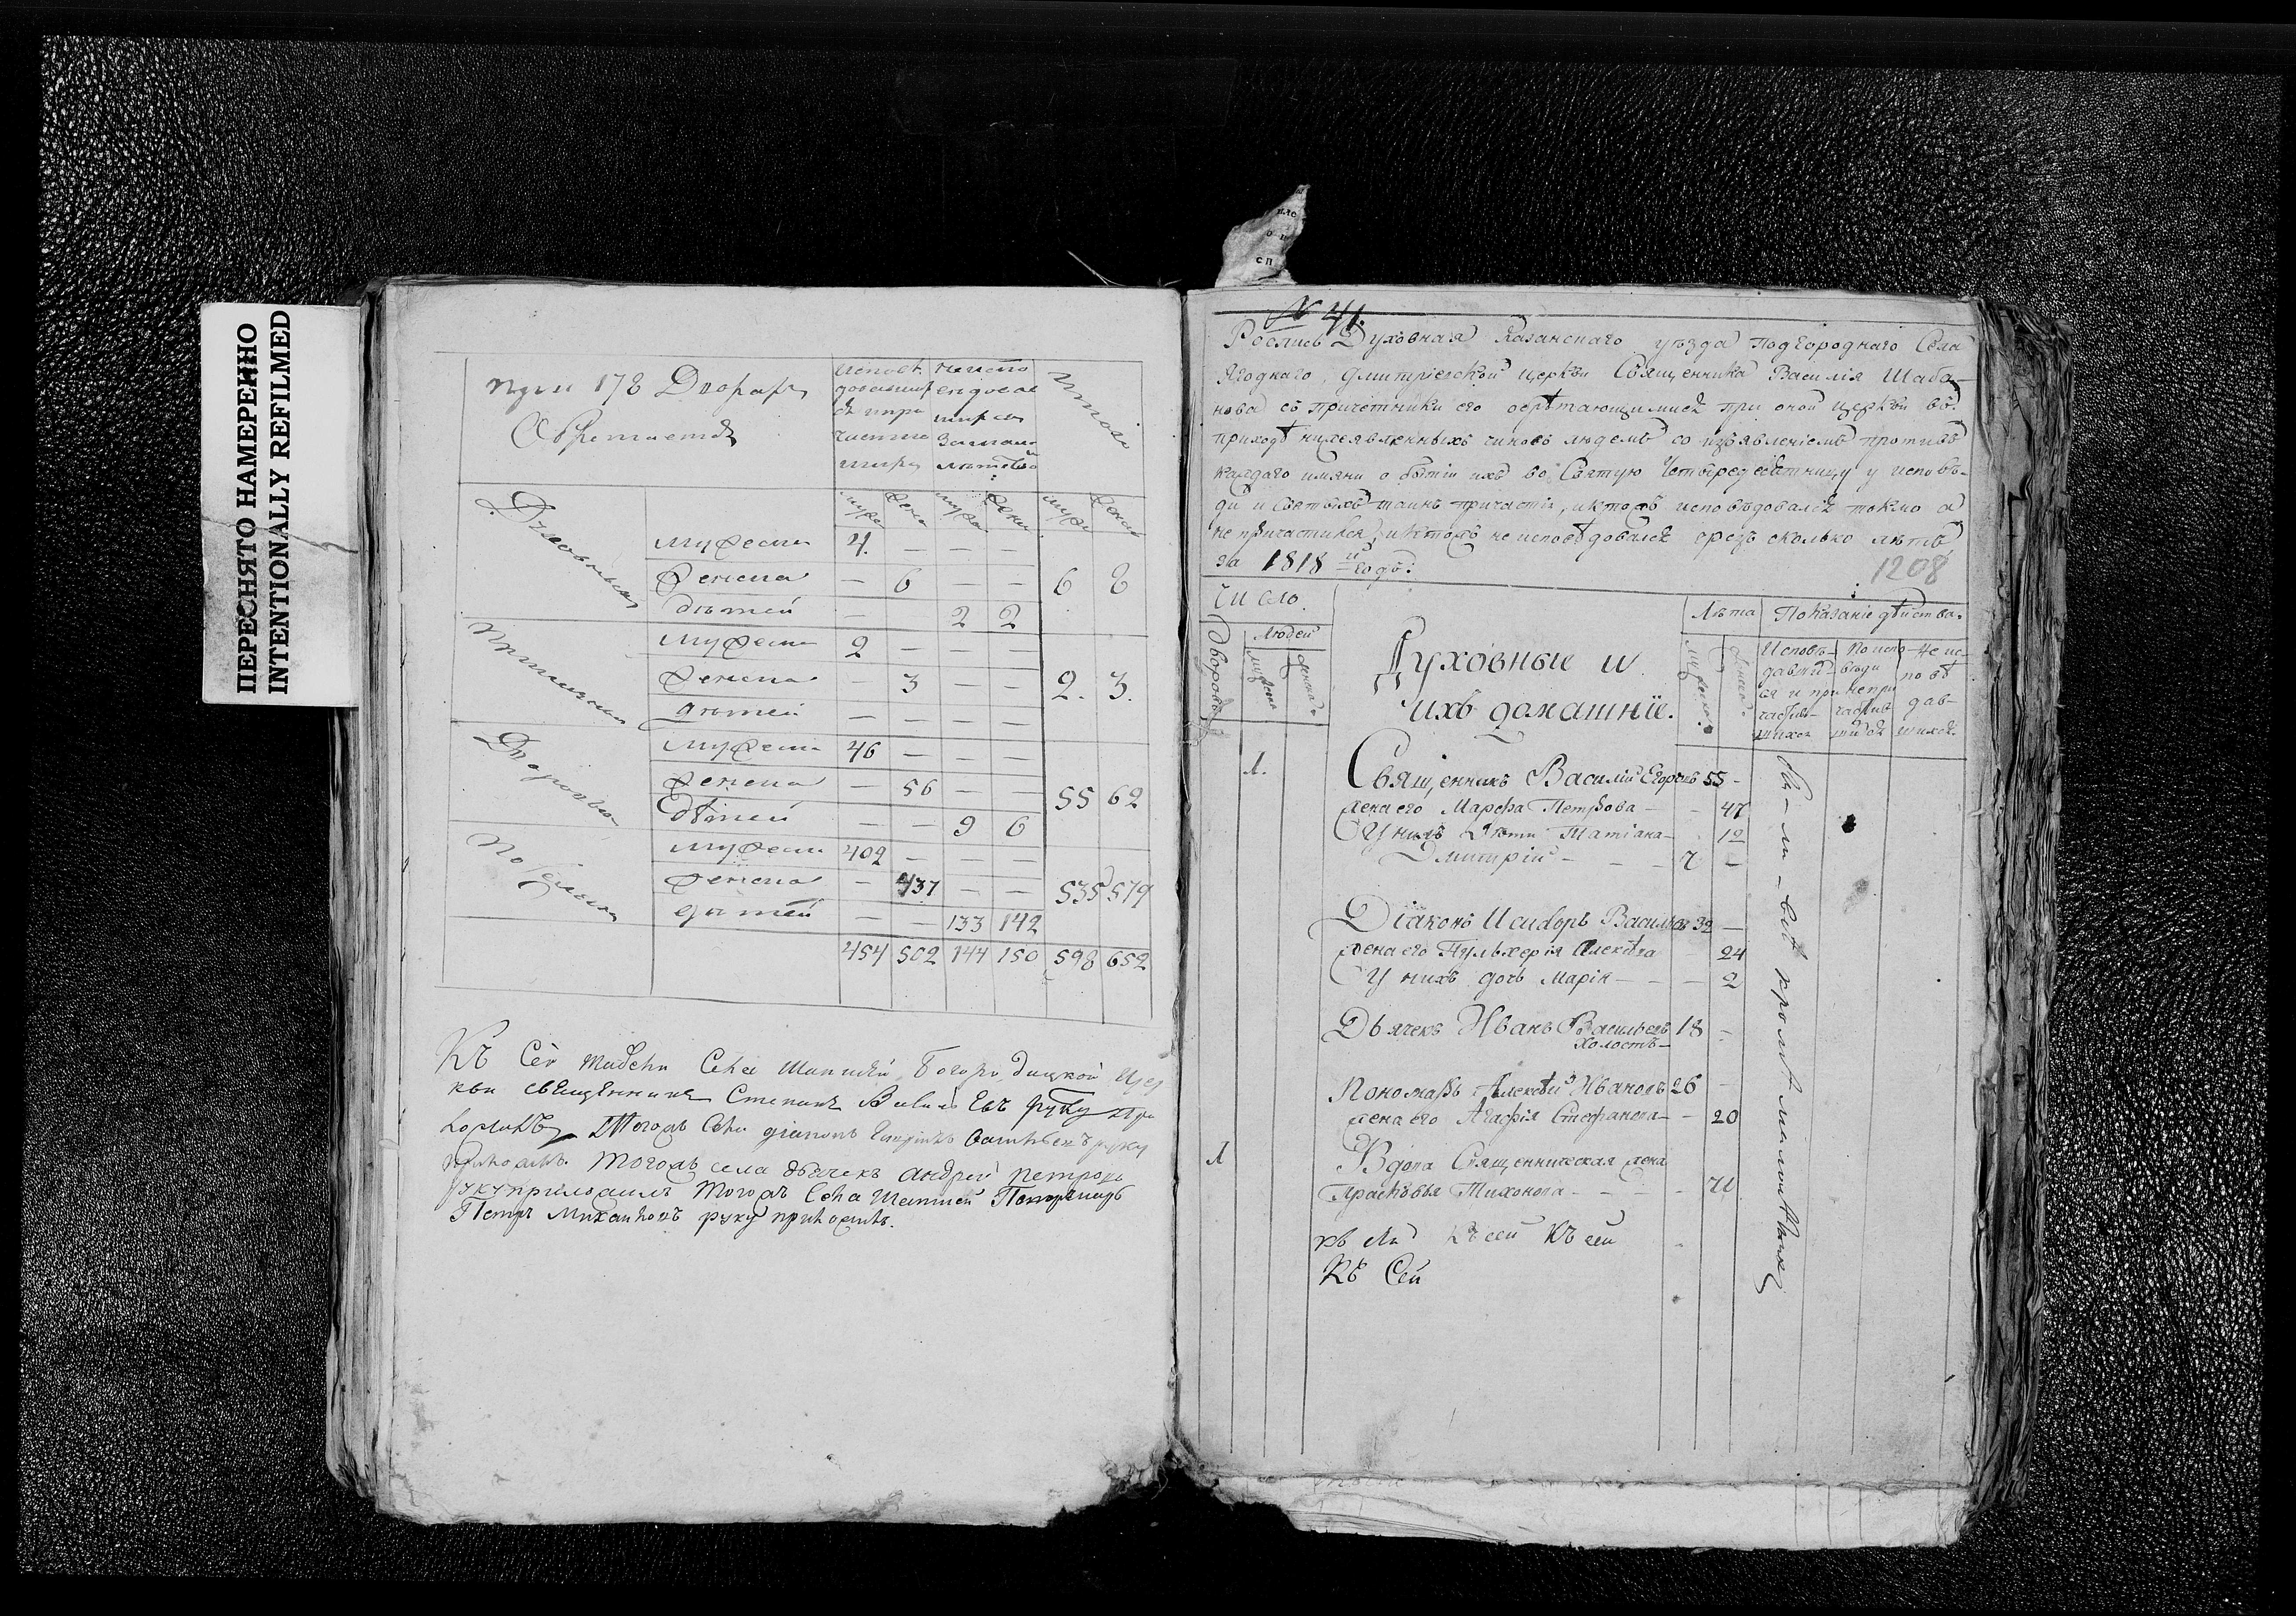 ПЕРЕСНЯТО НАМЕРЕННО
INTENTIONALLY REFILMED
при 178 Дворахъ
Обретается
Итого
муж жен муж жен муж жен
Духовныхъ
мужеска 4. — — —
женска — 6 — — 6 8
детей — 2 2
мужеска 2 — — —
женска — 3 — — 2. 3.
детей — — — —
Дворовыхъ
мужеска 46 — — —
женска — 56 — — 55 62
детей — — 9 6
мужеска 402 — — —
женска — 437 — — 535 579
детей — — 133 142
454 502 144 150 598 652
Къ Сей Села Богородицкой Цер
кви священникъ Степанъ руку при
ложилъ Тогожъ Села діаконъ руку
приложилъ. Тогожъ села дьячекъ Андрей Петровъ
руку приложилъ Тогожъ Села Пономарь
Петръ Михаиловъ руку приложилъ.
№ 41.
Роспись Духовная Казанскаго уѣзда подгороднаго Села
Ягоднаго, Дмитріевской церкви Священника Василія Шаба-
нова съ причетники его обрѣтающимися при оной церкви въ
приходѣ нижеявленныхъ чиновъ людемъ со изъявленіемъ противъ
каждаго имяни о бытіи ихъ во Святую Четыредесятницу у исповѣ-
ди и Святыхъ таинъ причастія, иктожъ исповѣдовался токмо а
не причастился, иктожъ не исповѣдовался
за 1818 й годъ.
1208
Число.
Дворовъ
Людей
мужеска
женска
Духовные и
ихъ домашніе.
Лѣта
мужеска
женска
Показаніе дѣйства.
Исповѣ-
давшіе-
ся и при
частив-
шихся
По испо-
вѣди
непри
частив
шихся
Не ис-
повѣ
дав-
шихся
1. Священникъ Василій Егоровъ 55 —
жена его Марфа Петрова — 47
У нихъ дѣти Татіана — 12
Дмитрій — — — 7 —
Діаконъ Исидоръ Васильевъ 32 —
жена его Пульхерія Алексѣева 24
У нихъ дочь Марія — — — 2
Дьячекъ Иванъ Васильевъ 18 —
холостъ —
Пономарь Алексѣй Ивановъ 26 —
жена его Агафія Стефанова — 20
1 Вдова Священническая жена
Прасковья Тихонова — — — 71
къ сей Къ сей Къ сей
Къ Сей